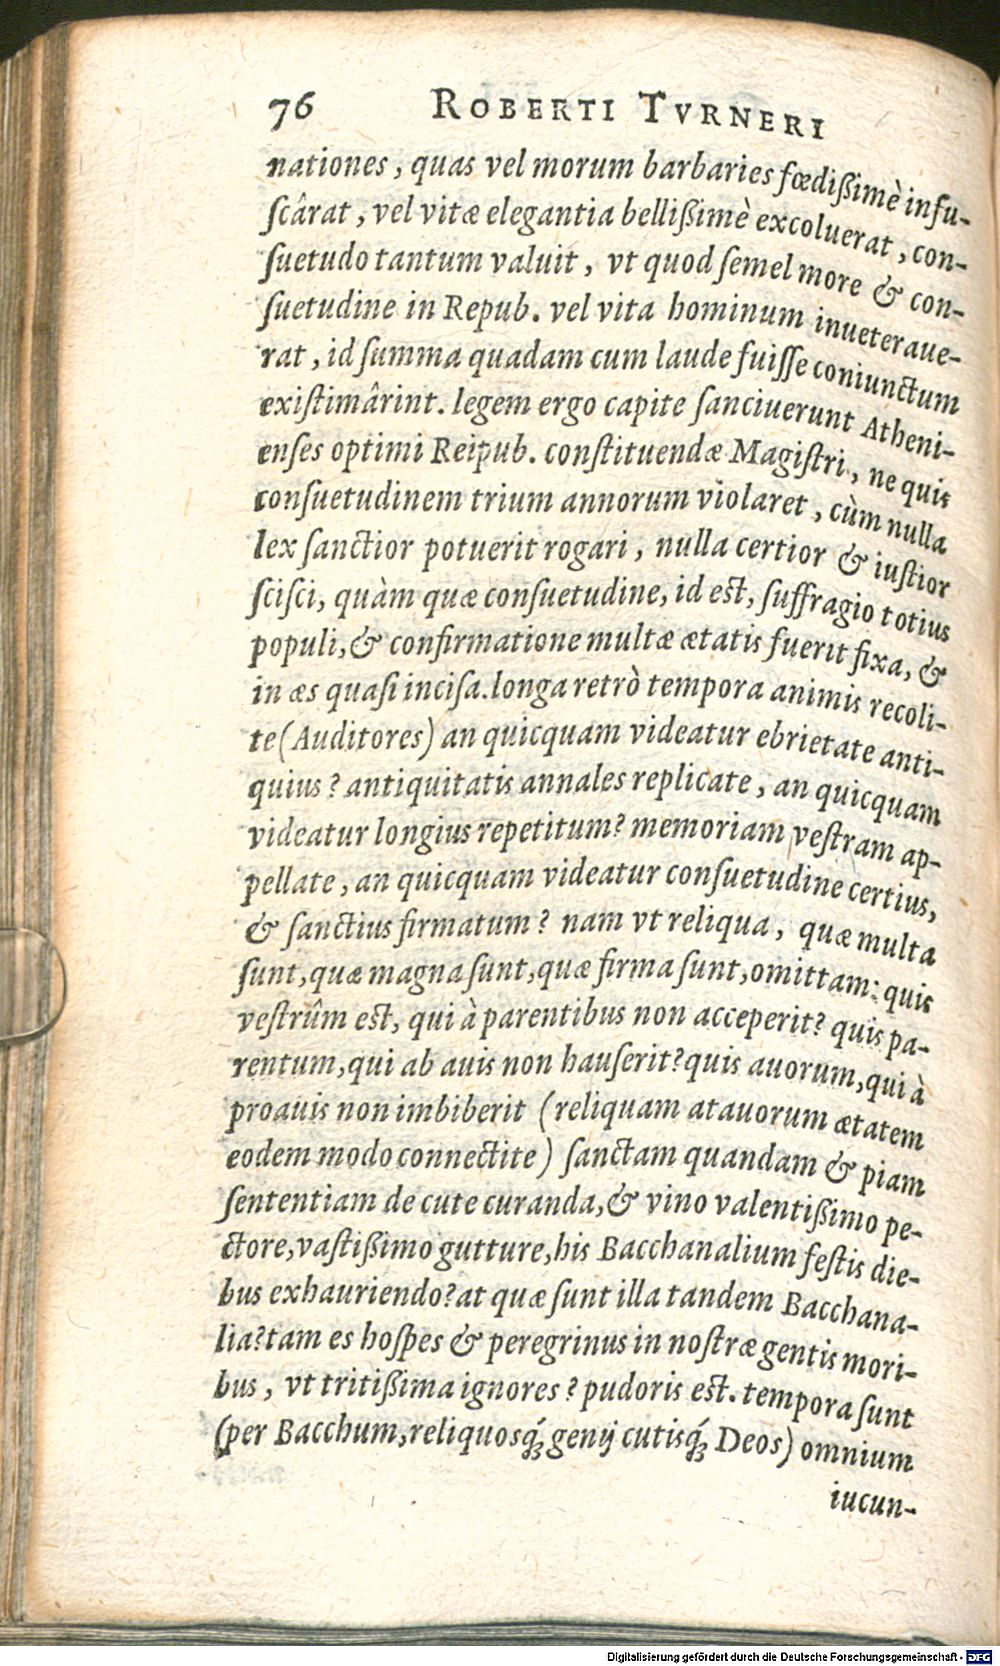 76 ROBERTI TVRNERI
nationes, quas vel morum barbaries fœdißimè infu-
ſcârat, vel vitæ elegantia bellißimè excoluerat, con-
ſuetudo tantum valuit, vt quod ſemel more & con-
ſuetudine in Repub. vel vita hominum inueteraue-
rat, id ſumma quadam cum laude fuiſſe coniunctum
existimârint. legem ergo capite ſanciuerunt Atheni-
enſes optimi Reipub. constituendæ Magiſtri, ne quis
conſuetudinem trium annorum violaret, cùm nulla
lex ſanctior potuerit rogari, nulla certior & iuſtior
ſciſci, quàm quæ conſuetudine, id est, ſuffragio totius
populi, & confirmatione multæ ætatis fuerit fixa, &
in æs quaſi inciſa. longa retrò tempora animis recoli-
te (Auditores) an quicquam videatur ebrietate anti-
quius? antiquitatis annales replicate, an quicquam
videatur longius repetitum? memoriam veſtram ap-
pellate, an quicquam videatur conſuetudine certius,
& ſanctius firmatum? nam vt reliqua, quæ multa
ſunt, quæ magna ſunt, quæ firma ſunt, omittam: quis
veſtrûm est, qui à parentibus non acceperit? quis pa-
rentum, qui ab auis non hauſerit? quis auorum, qui à
proauis non imbiberit (reliquam atauorum ætatem
eodem modo connectite) ſanctam quandam & piam
ſententiam de cute curanda, & vino valentißimo pe-
ctore, vaſtißimo gutture, his Bacchanalium feſtis die-
bus exhauriendo? at quæ ſunt illa tandem Bacchana-
lia? tam es hoſpes & peregrinus in noſtræ gentis mori-
bus, vt tritißima ignores? pudoris est. tempora ſunt
(per Bacchum, reliquosq́; genij cutisq́; Deos) omnium
iucun-
Digitalisierung gefördert durch die Deutsche Forschungsgemeinschaft - DFG